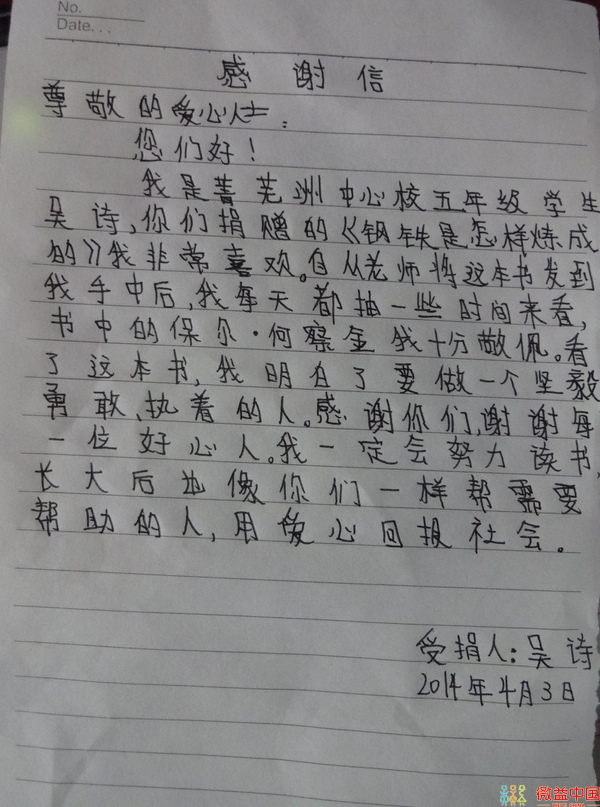 No.
Date...
感谢信
尊敬的爱心人士：
您们好！
我是菁芜洲中心校五年级学生
吴诗，你们捐赠的《钢铁是怎样炼成
的》我非常喜欢。自从老师将这本书发到
我手中后，我每天都抽一些时间来看，
书中的保尔·何察金我十分敬佩。看
了这本书，我明白了要做一个坚毅
勇敢、执着的人。感谢你们，谢谢每
一位好心人。我一定会努力读书，
长大后也像你们一样帮需要
帮助的人，用爱心回报社会。
受捐人：吴诗
2014年4月3日
微益中国